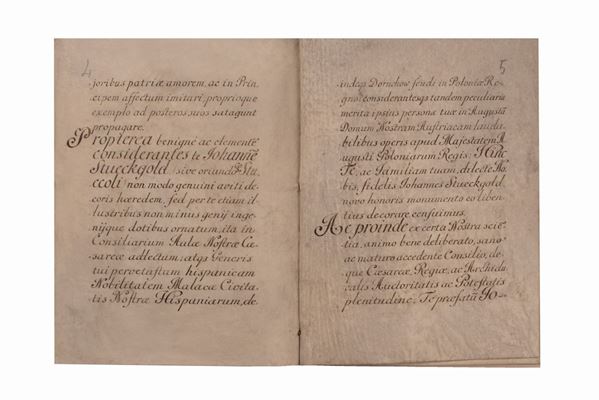 4
joribus patriæ amorem, ac in Prin-
cipem affectum imitari, proprioque
exemplo ad posteros suos satagunt
propagare.
Propterea benigne ac clementer
considerantes te Johannē
Stueckgold, (sive oriundo
ccoli) non modo genuini aviti de-
coris hæredem, sed per te etiam il-
lustribus non minus genij inge-
nijque dotibus ornatum, ita in
Consiliarium Aulæ Nostræ Cæ-
sareæ adlectum; atqs Generis
tui pervetustum hispanicam
Nobilitatem Malacæ Civita-
tis Nostræ Hispaniarum, de,
5
indeqs Dornchow feudi in Poloniæ Re-
gno: considerantesqs tandem peculiaria
merita ipsius personæ tuæ in Augustā
Domum Nostram Austriacam lauda-
bilibus operis apud Majestatem A-
ugusti Poloniarum Regis; Hinc
Te, ac Familiam tuam, dilecte No-
bis, fidelis Johannes Stueckgold,
novo honoris monumento eo liben-
tius decorare censuimus.
Ac proinde ex certa Nostra scien-
tia, animo bene deliberato, sano
ac maturo accedente Consilio, de-
que Cæsareæ, Regiæ, ac Archidu-
calis Auctoritatis ac Potestatis
plenitudine, Te præfatū Jo-